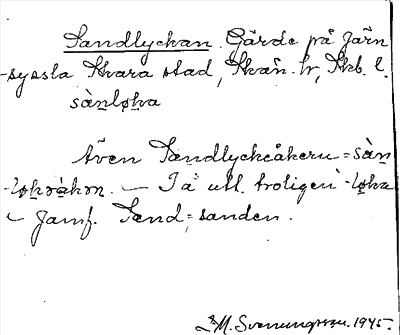 Sandlyckan. Gärde på Järn
-syssla Skara stad, Skån. hr, Skb. l.
sàn̲lø̲ka
Även Sandlyckeåkern = sàn̲
- Ta utt. troligen -lø̲ka
- Jämf. Sand = sanden.
M. Svenungsson. 1945.